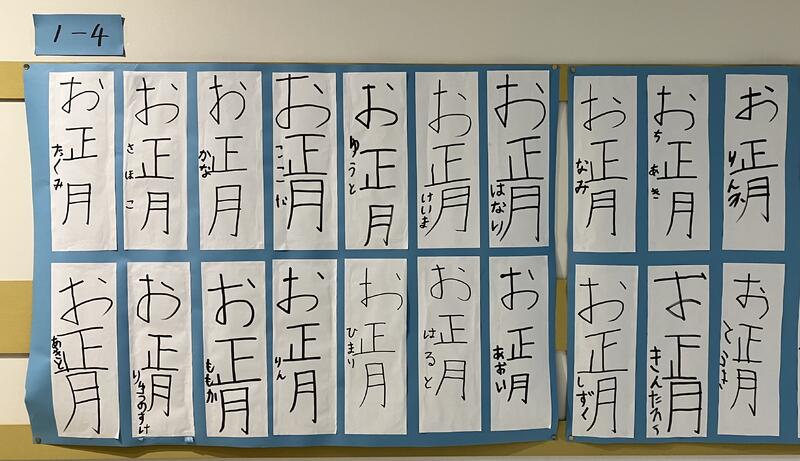 1-4
お正月
たくみ
お正月
さほこ
お正月
かな
お正月
お正月
ゆうと
お正月
けいま
お正月
はなり
お正月
なみ
お正月
ちあき
お正月
お正月
あきと
お正月
りゅうのすけ
お正月
ももか
お正月
りん
お正月
ひまり
お正月
はると
お正月
あおい
お正月
しずく
お正月
きんたろう
お正月